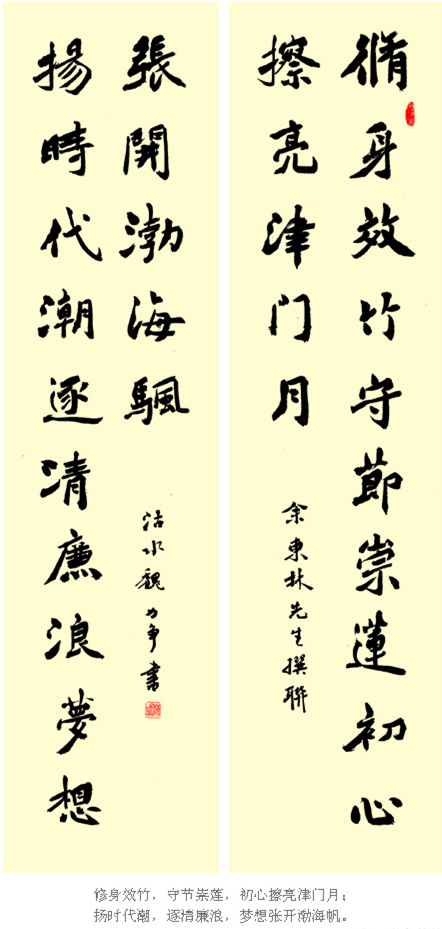 脩身效竹守節崇蓮初心
擦亮津门月
余東林先生撰聯
揚時代潮逐清廉浪夢想
張開渤海颿
沽水魏力争書
修身效竹，守节崇莲，初心擦亮津门月；
扬时代潮，逐清廉浪，梦想张开渤海帆。